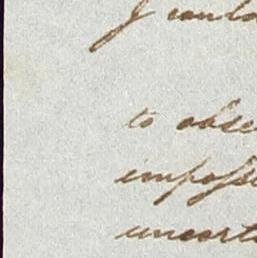 I coul
to obse
impoſs
uncert